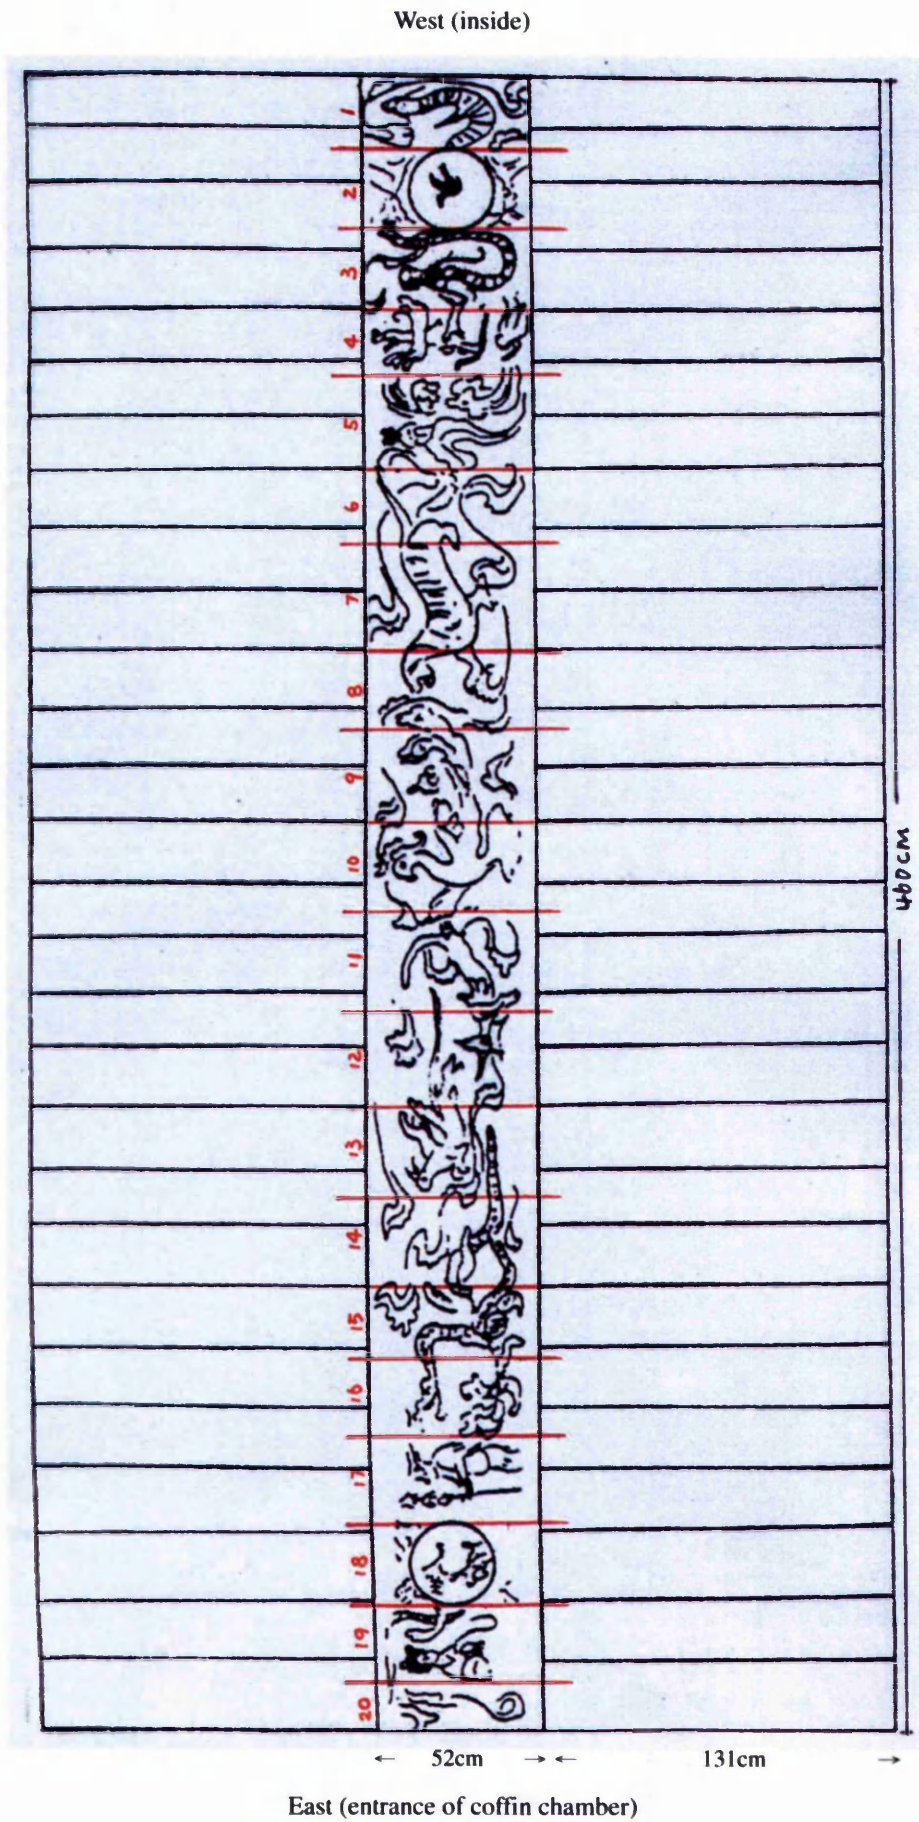 West (inside)
1
2
3
4
5
6
7
8
9
10
11
12
13
14
15
16
17
18
19
20
460cm
52cm
131cm
East (entrance of coffin chamber)